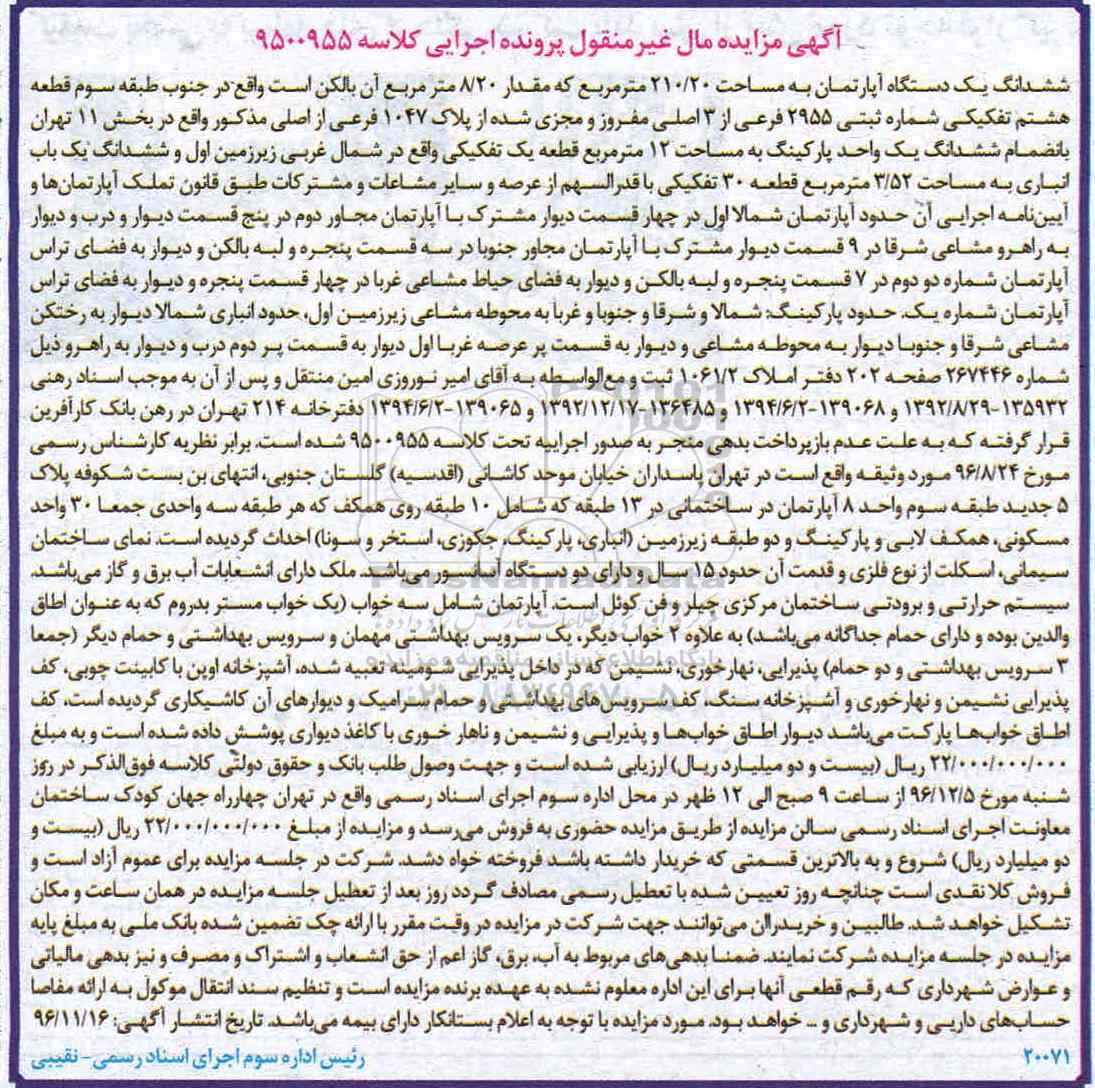 آگهی مزایده مال غیرمنقول پرونده اجرایی کلاسه ۹۵۰۰۹۵۵
ششدانگ یک دستگاه آپارتمان به مساحت ۲۱۰/۲۰ مترمربع که مقدار ۸/۲۰ متر مربع آن بالکن است واقع در جنوب طبقه سوم قطعه
هشتم تفکیکی شماره ثبتی ۲۹۵۵ فرعی از ۳ اصلی مفروز و مجزی شده از پلاک ۱۰۴۷ فرعی از اصلی مذکور واقع در بخش ۱۱ تهران
بانضمام ششدانگ یک واحد پارکینگ به مساحت ۱۲ مترمربع قطعه یک تفکیکی واقع در شمال غربی زیرزمین اول و ششدانگ یک باب
انباری به مساحت ۳/۵۲ مترمربع قطعه ۳۰ تفکیکی با قدرالسهم از عرصه و سایر مشاعات و مشترکات طبق قانون تملک آپارتمان‌ها و
آیین‌نامه اجرایی آن حدود آپارتمان شمالا اول در چهار قسمت دیوار مشترک با آپارتمان مجاور دوم در پنج قسمت دیوار و درب و دیوار
به راهرو مشاعی شرقا در ۹ قسمت دیوار مشترک با آپارتمان مجاور جنوبا در سه قسمت پنجره و لبه بالکن و دیوار به فضای تراس
آپارتمان شماره دو دوم در ۷ قسمت پنجره و لبه بالکن و دیوار به فضای حیاط مشاعی غربا در چهار قسمت پنجره و دیوار به فضای تراس
آپارتمان شماره یک. حدود پارکینگ: شمالا و شرقا و جنوبا و غربا به محوطه مشاعی زیرزمین اول، حدود انباری شمالا دیوار به رختکن
مشاعی شرقا و جنوبا دیوار به محوطه مشاعی و دیوار به قسمت پر عرصه غربا اول دیوار به قسمت پر دوم درب و دیوار به راهرو ذیل
شماره ۲۶۷۴۴۶ صفحه ۲۰۲ دفتر املاک ۱۰۶۱/۲ ثبت و مع‌الواسطه به آقای امیر نوروزی امین منتقل و پس از آن به موجب اسناد رهنی
۱۳۵۹۳۲-۱۳۹۲/۸/۲۹ و ۱۳۹۰۶۸-۱۳۹۴/۶/۲ و ۱۳۶۴۸۵-۱۳۹۲/۱۲/۱۷ و ۱۳۹۰۶۵-۱۳۹۴/۶/۲ دفترخانه ۲۱۴ تهران در رهن بانک کارآفرین
قرار گرفته که به علت عدم بازپرداخت بدهی منجر به صدور اجراییه تحت کلاسه ۹۵۰۰۹۵۵ شده است. برابر نظریه کارشناس رسمی
مورخ ۹۶/۸/۲۴ مورد وثیقه واقع است در تهران پاسداران خیابان موحد کاشانی (اقدسیه) گلستان جنوبی، انتهای بن بست شکوفه پلاک
۵ جدید طبقه سوم واحد ۸ آپارتمان در ساختمانی در ۱۳ طبقه که شامل ۱۰ طبقه روی همکف که هر طبقه سه واحدی جمعا ۳۰ واحد
مسکونی، همکف لابی و پارکینگ و دو طبقه زیرزمین (انباری، پارکینگ، جکوزی، استخر و سونا) احداث گردیده است. نمای ساختمان
سیمانی، اسکلت از نوع فلزی و قدمت آن حدود ۱۵ سال و دارای دو دستگاه آسانسور می‌باشد. ملک دارای انشعابات آب برق و گاز می‌باشد.
سیستم حرارتی و برودتی ساختمان مرکزی چیلر و فن کوئل است. آپارتمان شامل سه خواب (یک خواب مستر بدروم که به عنوان اطاق
والدین بوده و دارای حمام جداگانه می‌باشد) به علاوه ۲ خواب دیگر، یک سرویس بهداشتی مهمان و سرویس بهداشتی و حمام دیگر (جمعا
۳ سرویس بهداشتی و دو حمام) پذیرایی، نهارخوری، نشیمن که در داخل پذیرایی شومینه تعبیه شده، آشپزخانه اوپن با کابینت چوبی، کف
پذیرایی نشیمن و نهارخوری و آشپزخانه سنگ، کف سرویس‌های بهداشتی و حمام سرامیک و دیوارهای آن کاشیکاری گردیده است. کف
اطاق خواب‌ها پارکت می‌باشد دیوار اطاق خواب‌ها و پذیرایی و نشیمن و ناهار خوری با کاغذ دیواری پوشش داده شده است و به مبلغ
۲۲/۰۰۰/۰۰۰/۰۰۰ ریال (بیست و دو میلیارد ریال) ارزیابی شده است و جهت وصول طلب بانک و حقوق دولتی کلاسه فوق‌الذکر در روز
شنبه مورخ ۹۶/۱۲/۵ از ساعت ۹ صبح الی ۱۲ ظهر در محل اداره سوم اجرای اسناد رسمی واقع در تهران چهارراه جهان کودک ساختمان
معاونت اجرای اسناد رسمی سالن مزایده از طریق مزایده حضوری به فروش می‌رسد و مزایده از مبلغ ۲۲/۰۰۰/۰۰۰/۰۰۰ ریال (بیست و
دو میلیارد ریال) شروع و به بالاترین قسمتی که خریدار داشته باشد فروخته خواه دشد. شرکت در جلسه مزایده برای عموم آزاد است و
فروش کلا نقدی است چنانچه روز تعیین شده با تعطیل رسمی مصادف گردد روز بعد از تعطیل جلسه مزایده در همان ساعت و مکان
تشکیل خواهد شد. طالبین و خریدران می‌توانند جهت شرکت در مزایده در وقت مقرر با ارائه چک تضمین شده بانک ملی به مبلغ پایه
مزایده در جلسه مزایده شرکت نمایند. ضمنا بدهی‌های مربوط به آب، برق، گاز اعم از حق انشعاب و اشتراک و مصرف و نیز بدهی مالیاتی
و عوارض شهرداری که رقم قطعی آنها برای این اداره معلوم نشده به عهده برنده مزایده است و تنظیم سند انتقال موکول به ارائه مفاصا
حساب‌های داریی و شهرداری و ... خواهد بود. مورد مزایده با توجه به اعلام بستانکار دارای بیمه می‌باشد. تاریخ انتشار آگهی: ۹۶/۱۱/۱۶
۲۰۰۷۱ رئیس اداره سوم اجرای اسناد رسمی- نقیبی